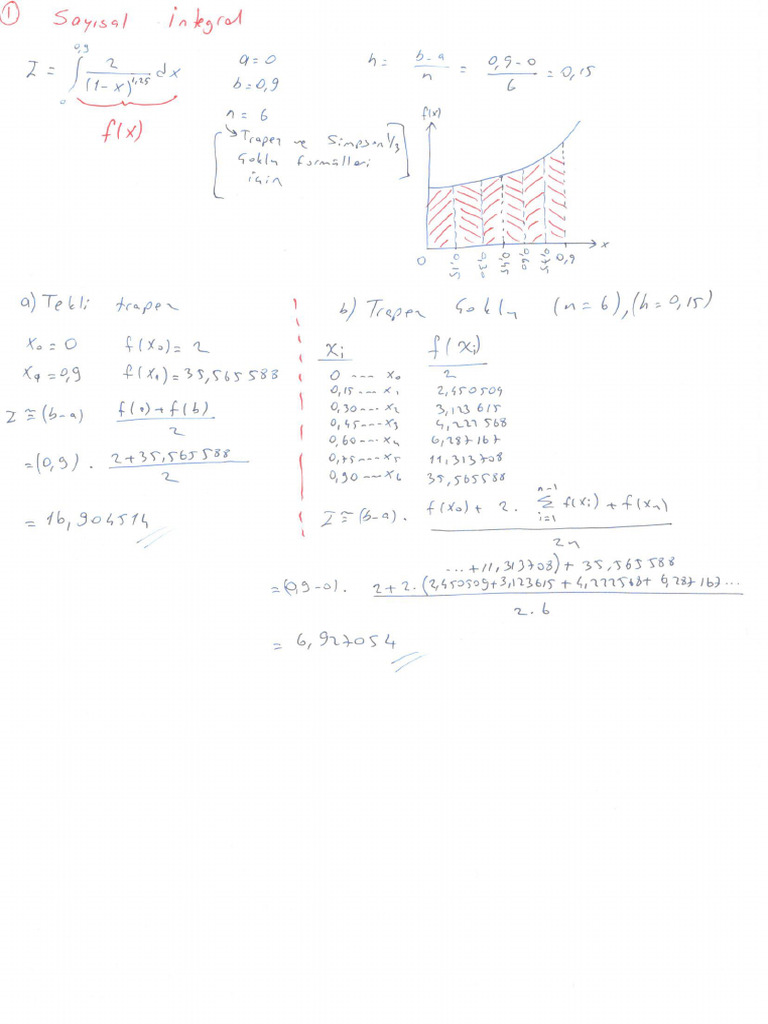 ① Sayısal integral
I = ∫₀^0,9 2/(1-x)^1,25 dx
f(x)
a=0
b=0,9
n=6
[→Trapez ve Simpson 1/3
Çoklu formülleri
için]
h = (b-a)/n = (0,9-0)/6 = 0,15
f(x)
x
0 0,15 0,30 0,45 0,60 0,75 0,9
a) Tekli trapez
x₀=0 f(x₀)=2
x₁=0,9 f(x₁)=35,565588
I ≅ (b-a) (f(a)+f(b))/2
=(0,9) . (2+35,565588)/2
= 16,904514
b) Trapez Çoklu (n=6),(h=0,15)
xᵢ f(xᵢ)
0 --- x₀ 2
0,15 --- x₁ 2,450509
0,30 --- x₂ 3,123615
0,45 --- x₃ 4,222568
0,60 --- x₄ 6,287167
0,75 --- x₅ 11,313708
0,90 --- x₆ 35,565588
I ≅ (b-a) . (f(x₀) + 2 . Σ_{i=1}^{n-1} f(xᵢ) + f(xₙ))/2n
...+11,313708) + 35,565588
=(0,9-0) . 2+2.(2,450509+3,123615+4,222568+6,287167...
2.6
= 6,927054